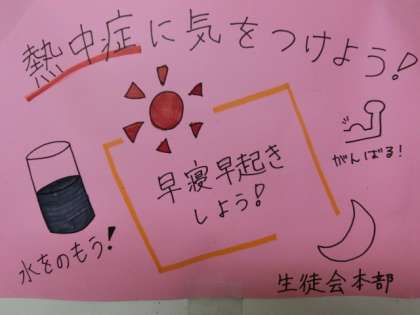 熱中症に気をつけよう!
早寝早起き
しよう!
がんばる!
水をのもう!
生徒会本部